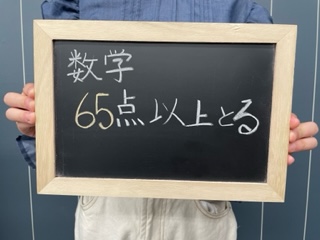 数学
65点以上とる